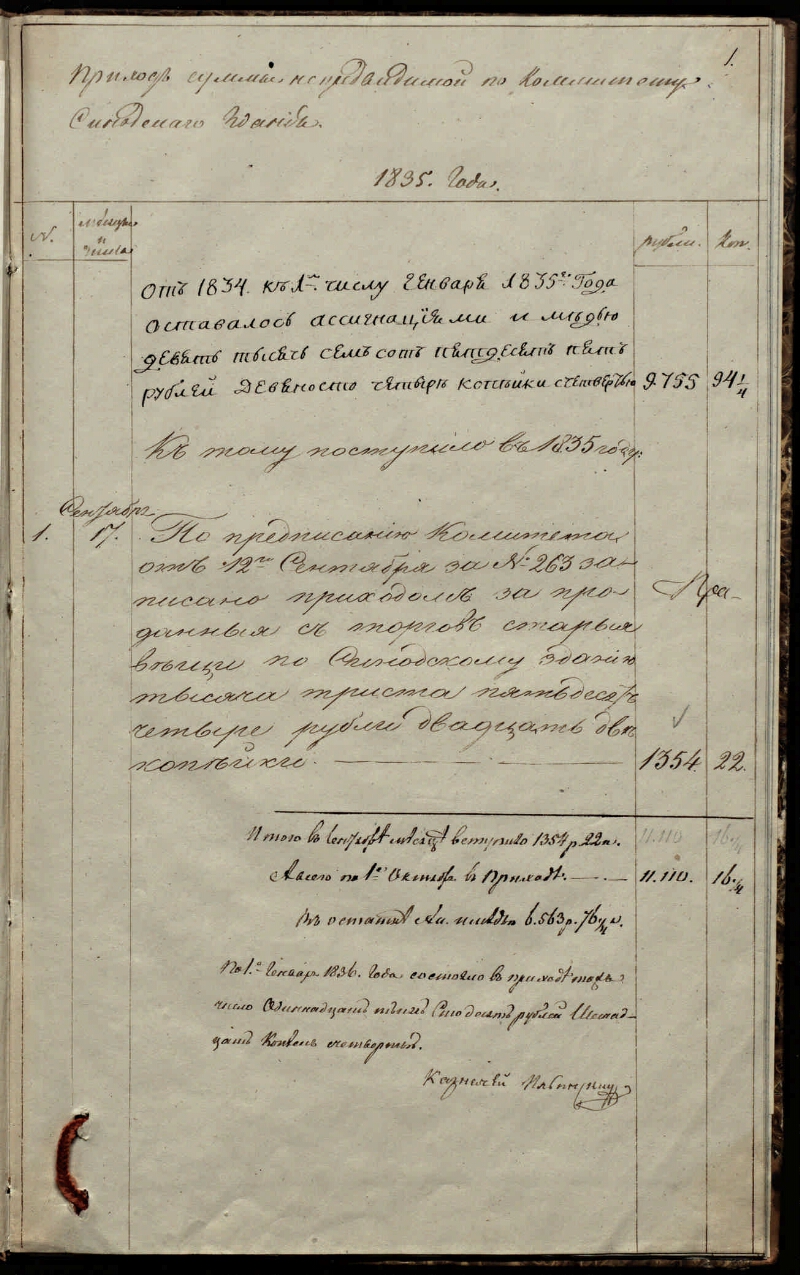 1.
Приход суммы непредвидимой по Коммитету
Синодскаго Зданія.
1835. Года.
№. Мѣсяцы и числа рубли. Коп.
Отъ 1834. къ 1му. числу Генваря 1835го. Года
Оставалось ассигнаціями и мѣдью
девять тысячь семь сотъ пятдесятъ пять
рублей Девяносто четыре копѣйки счетвертью 9.755 94 1/4
Къ тому поступило въ 1835 году:
Сентября
1. 17. По предписанію Комитета
отъ 12го Сентября за № 263 за-
писано приходомъ за про-
данныя съ торговъ старыя
вѣщи по Синодскому зданію
тысяча триста пятьдесятъ
четыре рубли двадцать двѣ
копѣйки. 1354. 22.
Итого в Сентябрѣ мѣсяцѣ вступило 1354 р 22 к. 11.110 16 1/4
А всего по 1е Октяб. в Приходѣ. 11.110. 16 1/4
Въ остаткѣ на. 6.563 р. 76 1/4 к.
По 1е. Генваря 1836. Года состояло в приходѣ тожъ
число Одиннадцать тысячъ Сто десять рублей Шестнад-
цать Копѣекъ счетвертью.
Казначей